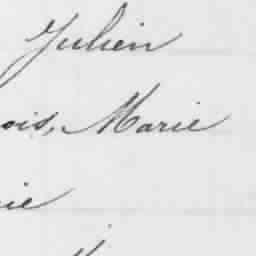 Julien
ois, Marie
ie